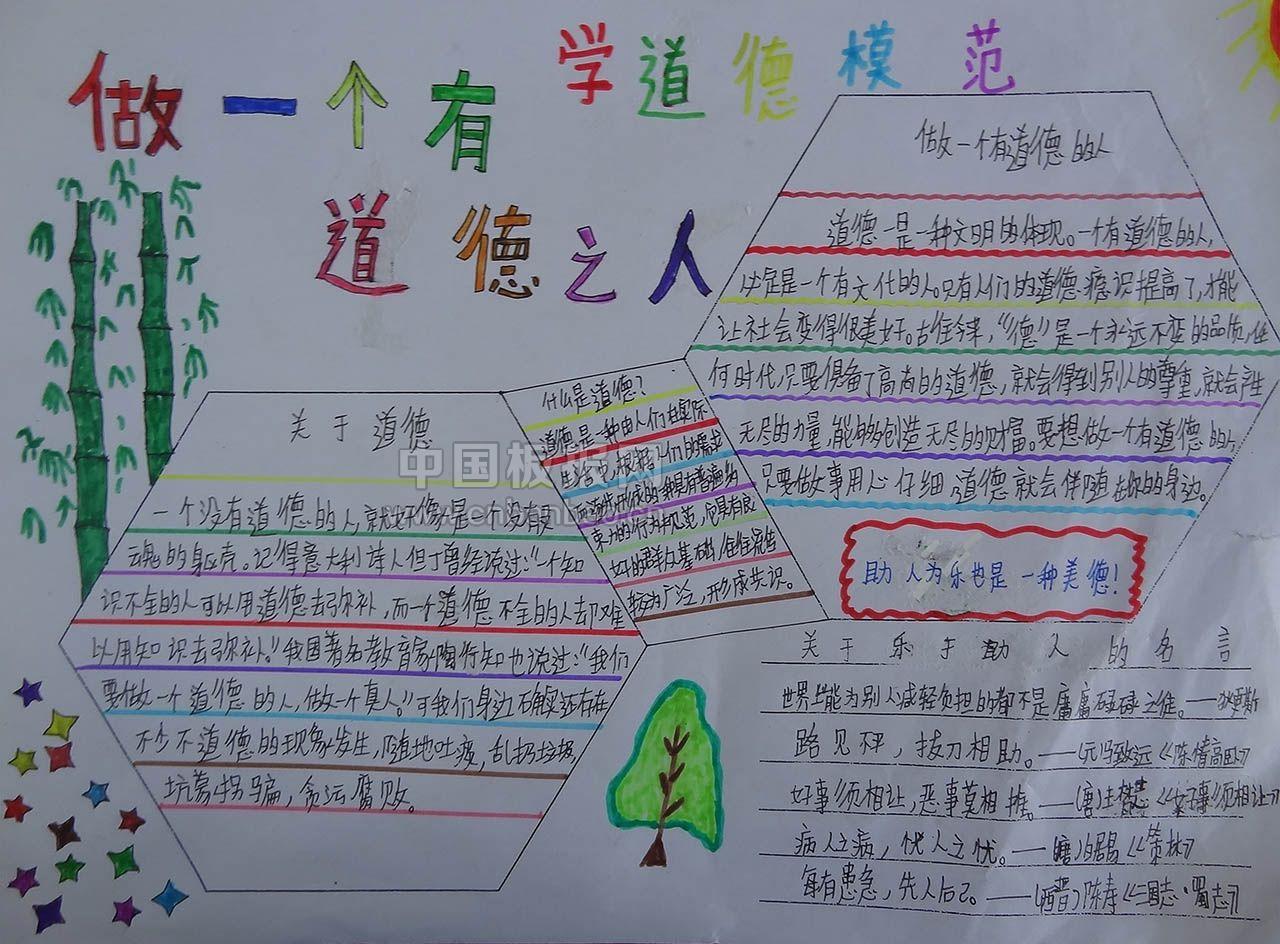 学道德模范
做一个有
道德之人
做一个有道德的人
道德是一种文明的体现。一个有道德的人,
必定是一个有文化的人。只有人们的道德意识提高了,才能
让社会变得很美好。古往今来,“德”是一个永远不变的品质,任
何时代,只要俱备了高尚的道德,就会得到别人的尊重,就会产生
无尽的力量,能够创造无尽的财富。要想做一个有道德的人
只要做事用心仔细 道德就会伴随在你的身边。
什么是道德?
道德是一种由人们在实际
生活中,根据人们的需求
而逐步形成的一种具有普遍约
束力的行为规范,它具有良
好的群众基础,往往流传
较为广泛,形成共识。
关于道德
一个没有道德的人,就好像是一个没有灵
魂的身躯壳。记得意大利诗人但丁曾经说过:“一个知
识不全的人可以用道德去弥补,而一个道德不全的人却难
以用知识去弥补。”我国著名教育家陶行知也说过:“我们
要做一个道德的人,做一个真人。”可我们身边确实还存在
不少不道德的现象发生,随地吐痰,乱扔垃圾,
坑蒙拐骗,贪污腐败。
助人为乐也是一种美德!
关于乐于助人的名言
世界上能为别人减轻负担的都不是庸庸碌碌之徒。——狄更斯
路见不平,拔刀相助。——(元)马致远《陈情高卧》
好事须相让,恶事莫相推。——(唐)王梵志《好事须相让》
病人之病,忧人之忧。——(唐)白居易《策林》
每有患急,先人后己。——(西晋)陈寿《三国志·蜀志》
中国板报网